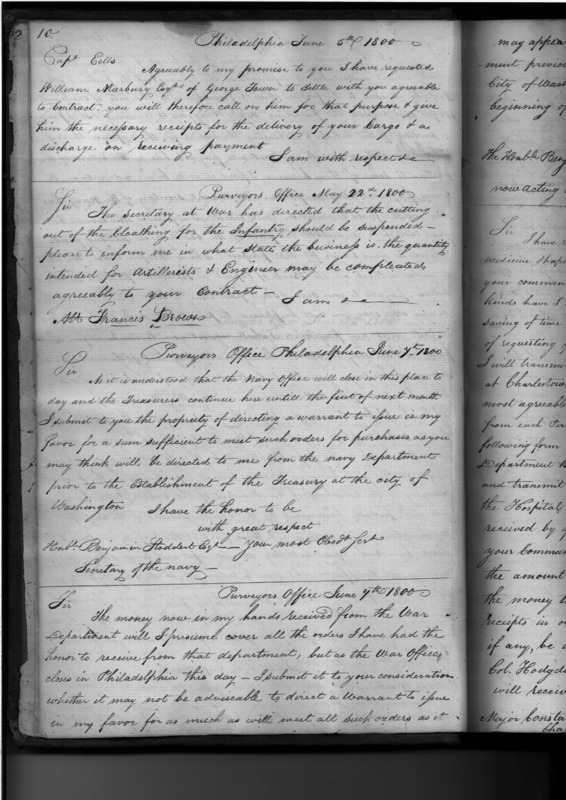 10.
Philadelphia June 5th 1800
Capt Eells
Agreably to my promise to you I have requested
William Marbury Esqr of George Town to settle with you agreable
to Contract; you will therefore call on him for that purpose & give
him the necessary receipts for the delivery of your Cargo & a
discharge on receiving payment
I am with respect &c
Purveyors Office May 22nd 1800
Sir
The Secretary at War has directed that the cutting
out of the Cloathing for the Infantry should be suspended —
please to inform me in what state the business is. the quantity
intended for Artillerists & Engineer may be compleated
agreably to your Contract —
I am &c
Mr Francis Brown
Purveyors Office Philadelphia June 7th 1800
Sir
As it is understood that the Navy Office will close in this place to
day and the Treasurers continue here untill the first of next month
I submit to you the propriety of directing a warrant to issue in my
favor for a sum sufficient to meet such orders for purchases as you
may think will be directed to me from the navy Department
prior to the Establishment of the Treasury at the city of
Washington
I have the honor to be
with great respect
Honbl. Benjamin Stoddert Esqr — Your most Obedt Servt
Secretary of the navy —
Purveyors Office June 7th 1800
Sir
The money now in my hands received from the War
Department will I presume cover all the orders I have had the
honor to receive from that department, but as the War Office
closes in Philadelphia this day — I submit it to your consideration
whether it may not be adviseable to direct a Warrant to issue
in my favor for as much as will meet all such orders as it
may appea
ment previou
City of Wash
beginning of
The Honble Benj
now Acting
Sir
I have
medicine
your comman
kinds have I
saving of time
of requesting
I will transm
at Charlestown
most agreeable
from each
following form
Department
and transmit
the Hospital
received by
your Comman
the amount
the money
receipts in
if any, be
Col. Hodgdo
will receiv
Major Consta